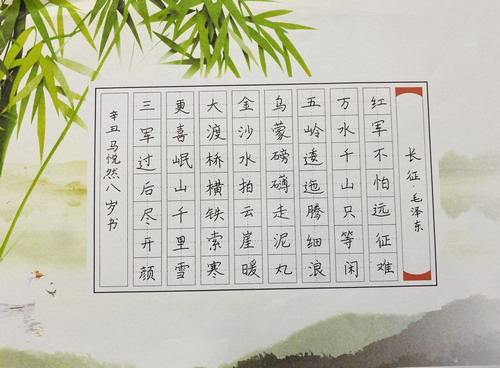 长征·毛泽东
红军不怕远征难
万水千山只等闲
五岭逶迤腾细浪
乌蒙磅礴走泥丸
金沙水拍云崖暖
大渡桥横铁索寒
更喜岷山千里雪
三军过后尽开颜
辛丑马悦然八岁书